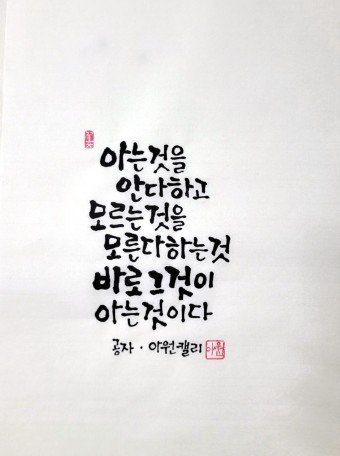 아는것을
안다하고
모르는것을
모른다하는것
바로그것이
아는것이다
공자 · 아원캘리
아원